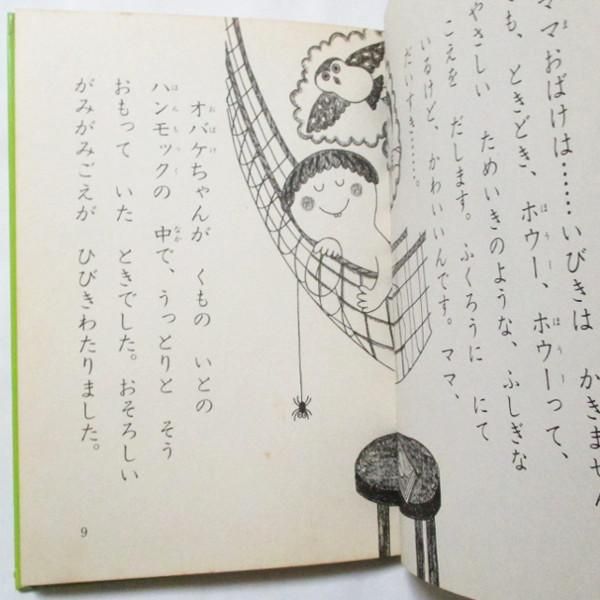 ママおばけは……いびきは かきません
も、ときどき、ホウー、ホウーって、
やさしい ためいきのような、ふしぎな
こえを だします。ふくろうに にて
いるけど、かわいいんです。ママ、
だいすき……。
オバケちゃんが くもの いとの
ハンモックの 中で、うっとりと そう
おもって いた ときでした。おそろしい
がみがみごえが ひびきわたりました。
9